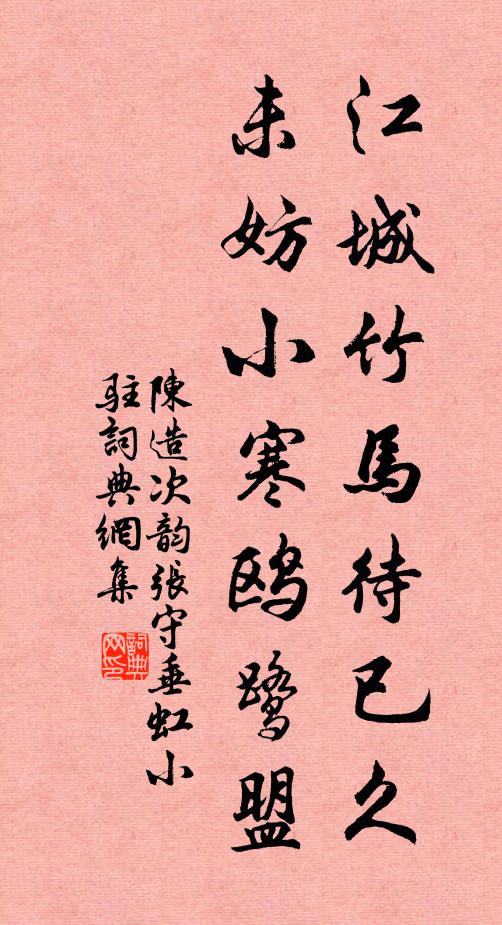 江城竹馬待已久
未妨小寒鷗鷺盟
陳造次韵張守垂虹小
駐詞典網集
詞典網印